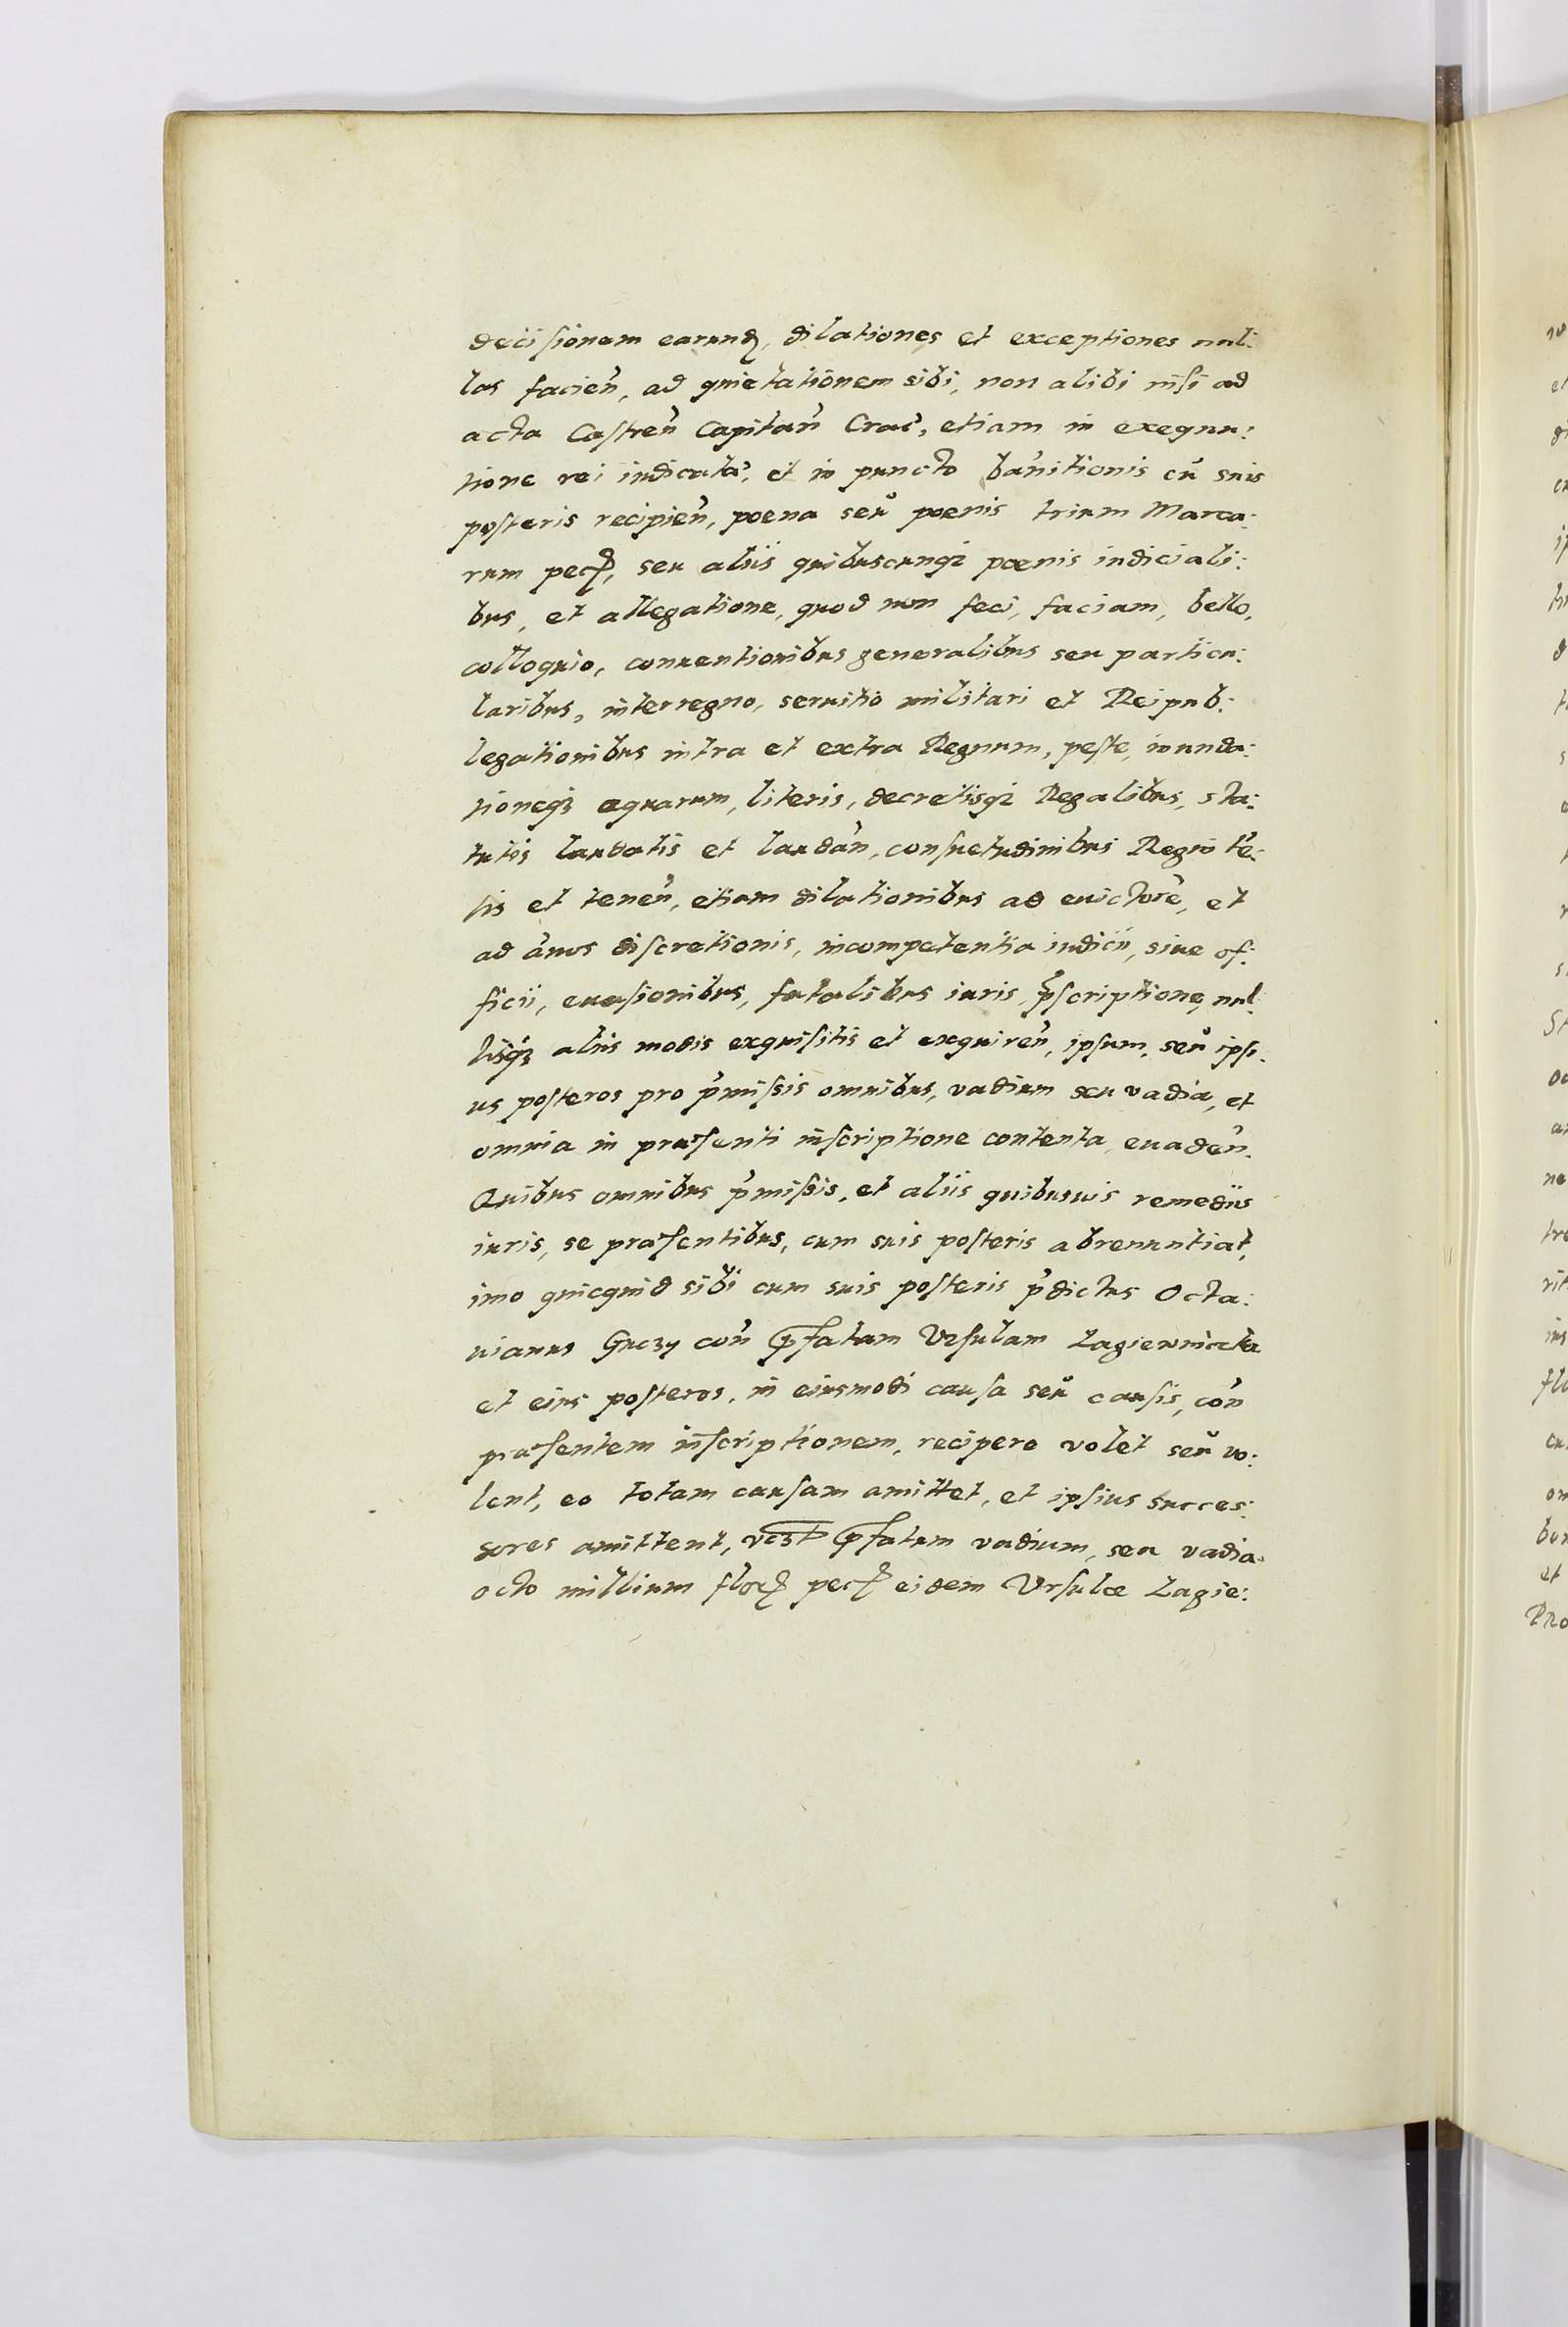 decisionem earund, dilationes et exceptiones nul:
las facien̄, ad quietationem sibi, non alibi nisi ad
acta Castren̄ Capitan̄ Crac̄, etiam in exequu:
tione rei iudicatæ, et in puncto bānitionis cū suis
posteris recipien̄, poena seu poenis trium Marca:
rum pec, seu aliis quibuscunq₃ poenis iudiciali:
bus, et allegatione, quod non feci, faciam, bello,
colloquio, conuentionibus generalibus seu particu:
laribus, interregno, seruitio militari et Reipub:
legationibus intra et extra Regnum, peste, inunda:
tioneq₃ aquarum, literis, decretisq₃ Regalibus, sta:
tutis laudatis et laudan̄, consuetudinibus Regni tē:
tis et tenen̄, etiam dilationibus ad euictorē, et
ad ānos discretionis, incompetentia iudicii, siue of:
ficii, euasionibus, fatalibus iuris, p̄scriptione, nul:
lisq₃ aliis modis exquisitis et exquiren̄, ipsum, seu ipsi:
us posteros pro p̄missis omnibus, vadium seu vadia, et
omnia in præsenti inscriptione contenta, euaden̄.
Quibus omnibus p̄missis, et aliis quibusuis remediis
iuris, se præsentibus, cum suis posteris abrenuntiat,
imo quicquid sibi cum suis posteris p̄dictus Octa:
uianus Guczy con̄ p̄fatam Vrsulam Lagiewnicka
et eius posteros, in eiusmodi causa seu causis, con̄
præsentem inscriptionem, recipere volet seu vo:
lent, eo totam causam amittet, et ipsius succes:
sores amittent, p̄fatum vadium, seu vadia
octo millium flor pec eidem Vrsulæ Lagie: